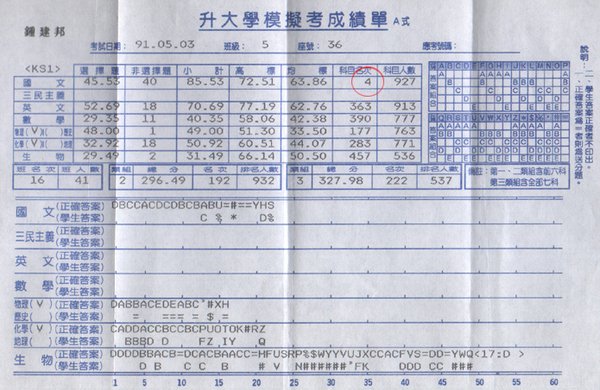 升大學模擬考成績單 A式
鍾建邦
考試日期: 91.05.03 班級: 5 座號: 36 應考號碼:
<KS1> 選擇題 非選擇題 小計 高標 均標 科目名次 科目人數
國文 45.53 40 85.53 72.51 63.86 4 927
三民主義
英文 52.69 18 70.69 77.19 62.76 363 913
數學 29.35 11 40.35 58.06 42.38 390 777
物理(V)( )歷史 48.00 1 49.00 51.30 33.50 177 763
化學(V)( )地理 32.92 18 50.92 60.51 44.07 283 771
生物 29.49 2 31.49 66.14 50.50 457 536
班名次 班人數 類組 總分 名次 排名人數 類組 總分 名次 排名人數
16 41 2 296.49 192 932 3 327.98 222 537
備註:第一、二類組含前六科
第三類組含全部七科
說明:一、正確答案為#者則為送分題。
二、學生答案正確者不印出。
國文 (正確答案) DBCCACDCDBCBABU=#==YHS
(學生答案) C % * D%
三民主義 (正確答案)
(學生答案)
英文 (正確答案)
(學生答案)
數學 (正確答案)
(學生答案)
物理(V) (正確答案) DABBACEDEABC*#XH
歷史( ) (學生答案) = === = $ =
化學(V) (正確答案) CADDACCBCCBCPUOTOK#RZ
地理( ) (學生答案) BBBD D FZ,IY Q
生物 (正確答案) DDDDBBACB=DCACBAACC=HFUSRP%$WYYVUJXCCACFVS=DD=YWQ<17:D >
(學生答案) D B C C B # V N######*FK DDD CC ###
1 5 10 15 20 25 30 35 40 45 50 55 60